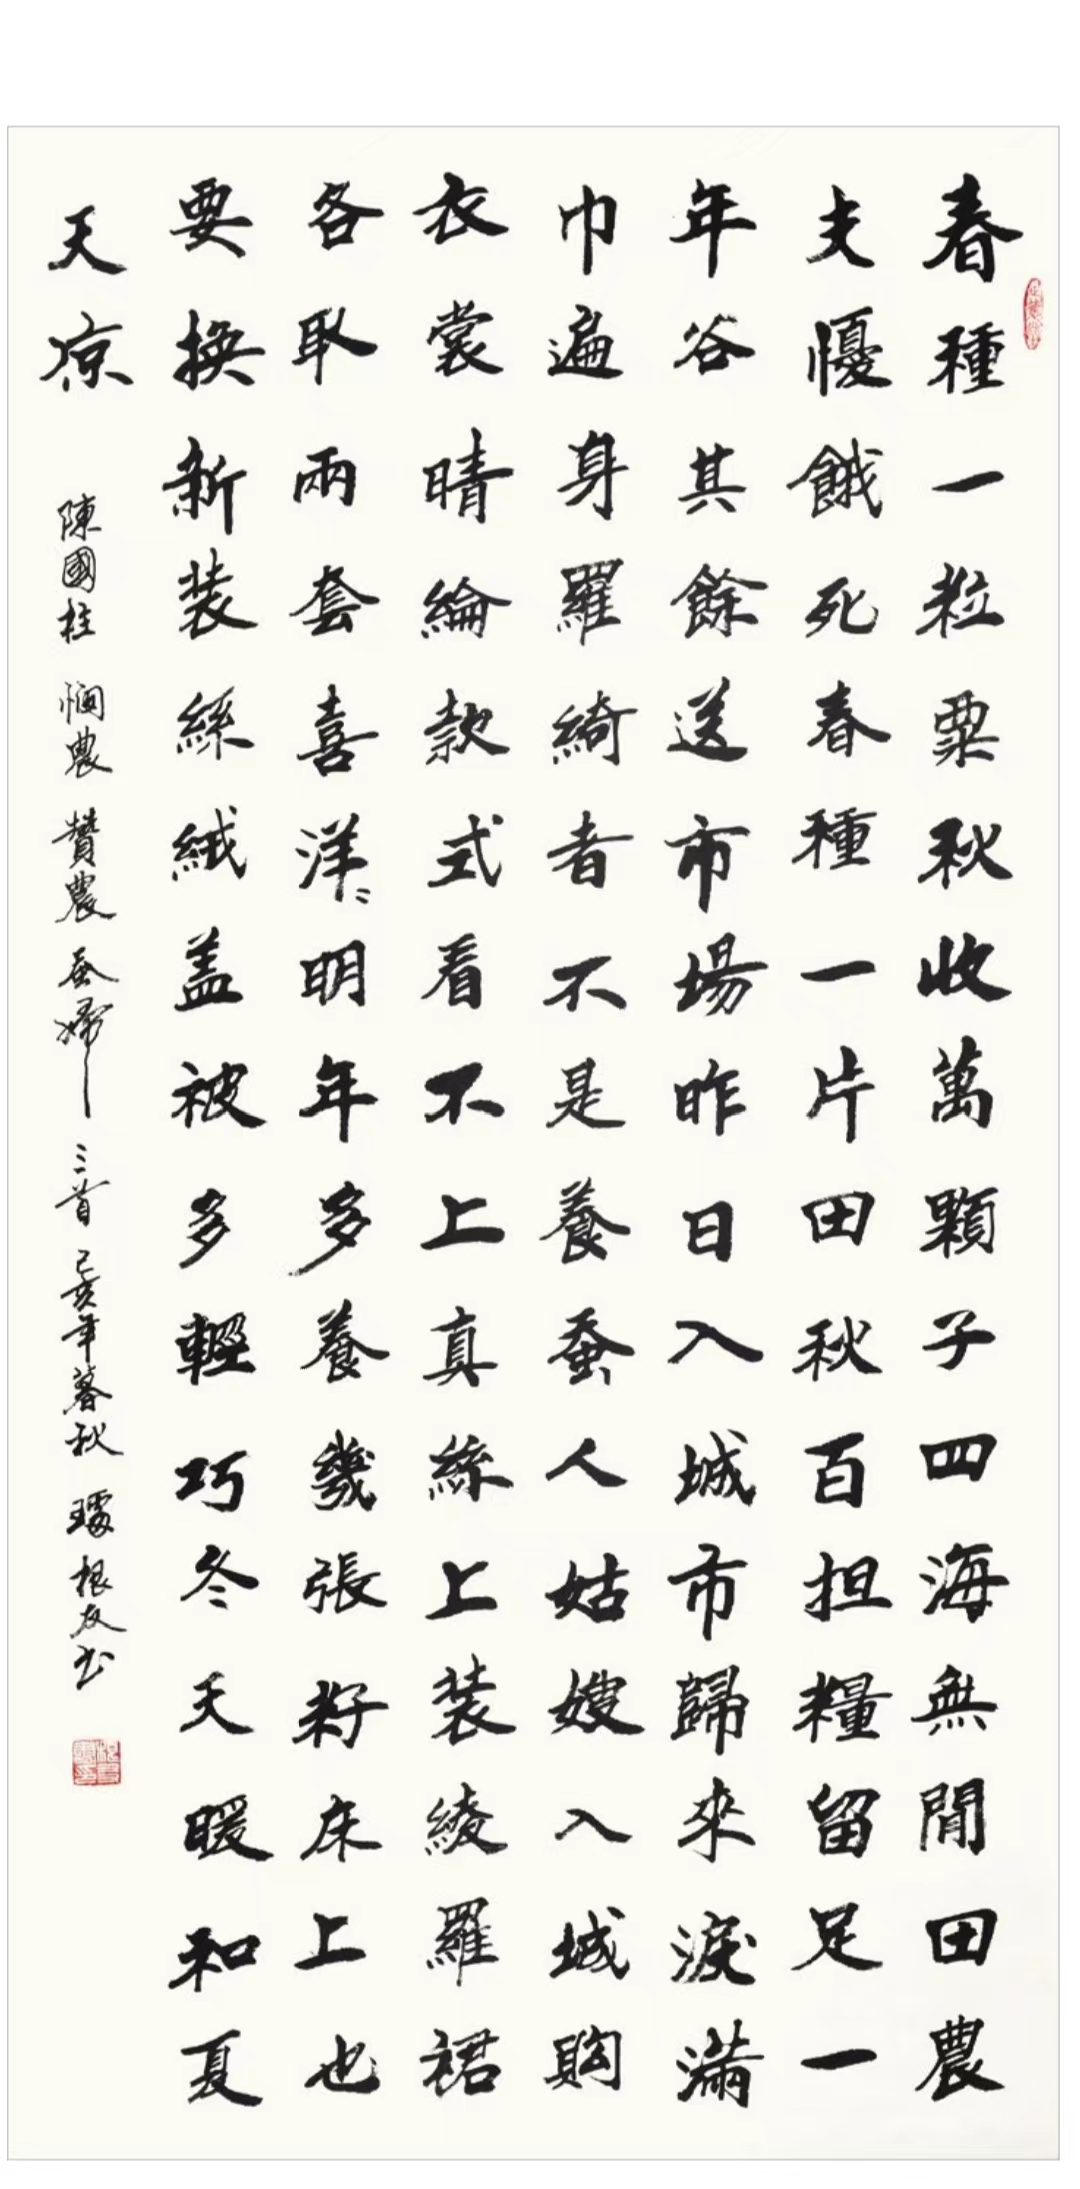 春種一粒粟秋收萬顆子四海無閒田農
夫憂餓死春種一片田秋百担糧留足一
年谷其餘送市場昨日入城市歸來淚滿
巾遍身羅綺者不是養蚕人姑嫂入城购
衣裳晴綸款式看不上真絲上装綾羅裙
各取兩套喜洋洋明年多養幾張籽床上也
要换新装絲絨盖被多輕巧冬天暖和夏
天凉
陳國柱 憫農 贊農 蚕婦 三首 己亥年暮秋 根友书